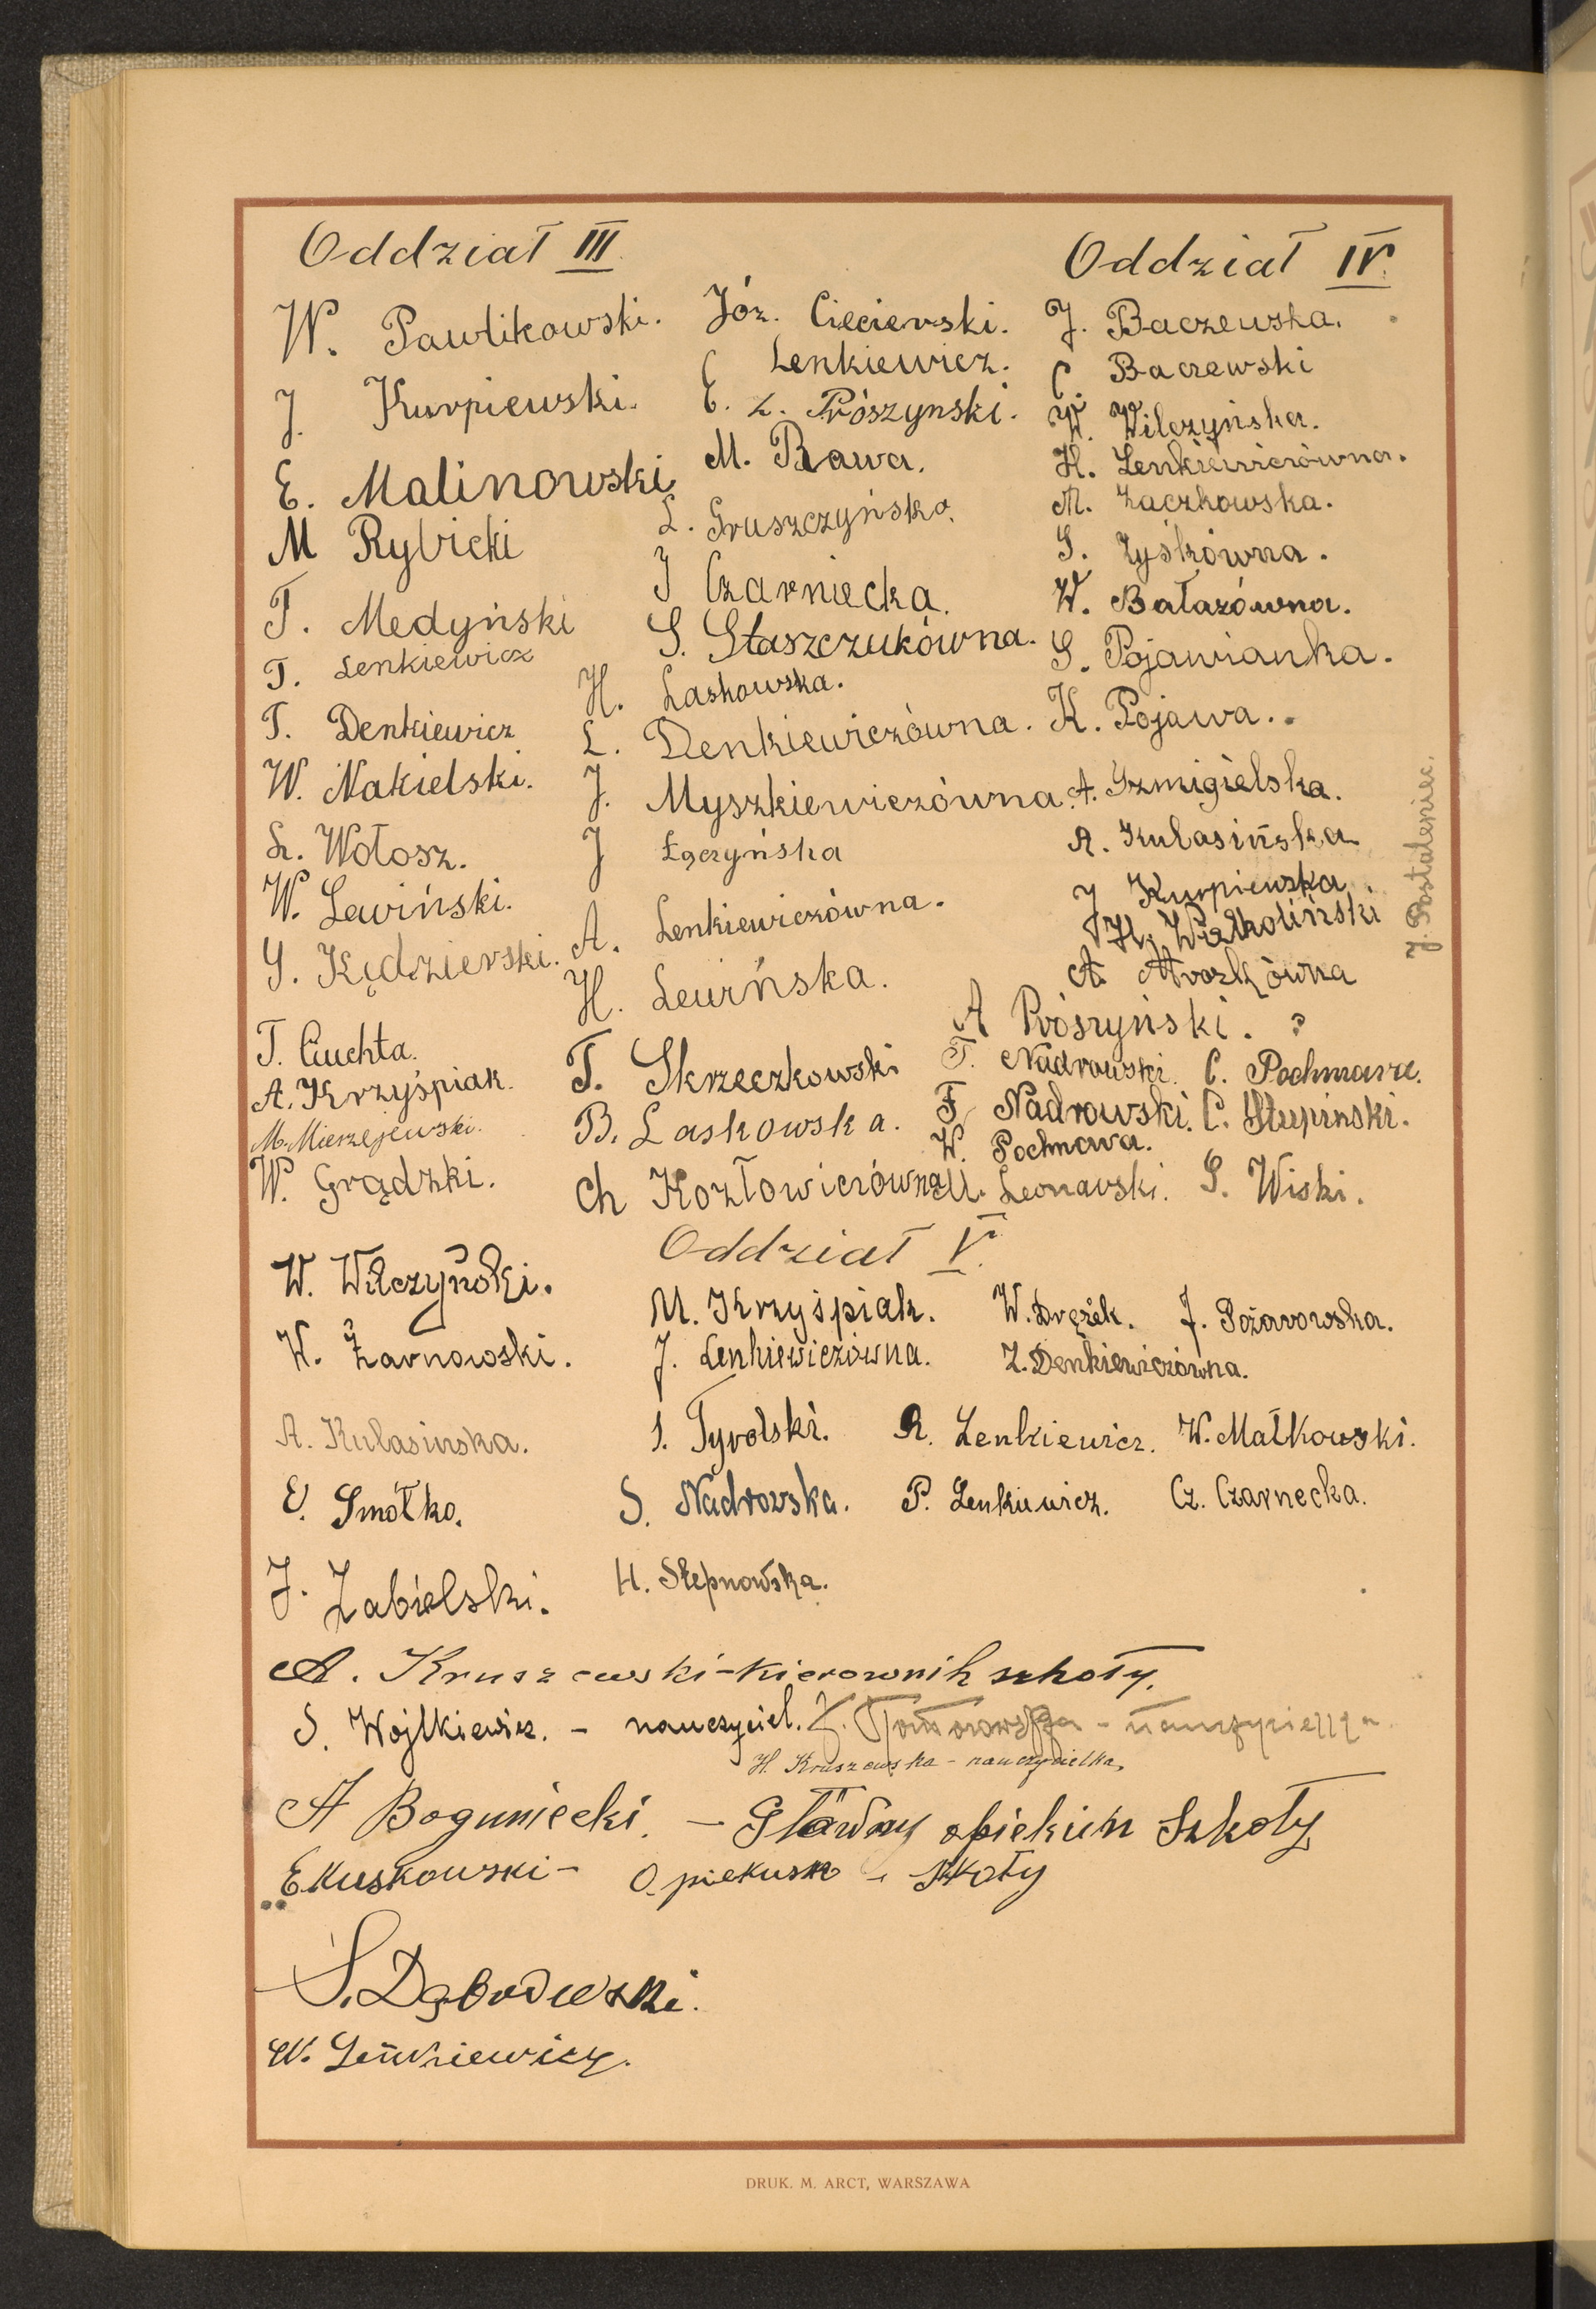 Oddział III.
W. Pawlikowski.
J. Kurpiewski.
E. Malinowski
M Rybicki
T. Medyński
T. Lenkiewicz
T. Denkiewicz
W. Nakielski.
L. Wołosz.
W. Lewiński.
S. Kędzierski.
T. Ciuchta.
A. Krzyśpiak.
M. Mierzejewski.
W. Grądzki.
W. Wilczyński.
W. Żarnowski.
A. Kulasinska.
E. Smółko.
J. Zabielski.
Józ. Ciecierski.
Lenkiewicz.
E. Z. Prószynski.
M. Rawa.
L. Gruszczyńska.
J Czarniecka.
S. Staszczukówna.
H. Laskowska.
L. Denkiewiczówna.
J. Myszkiewiczówna.
J Łączyńska
A. Lenkiewiczówna.
H. Lewińska.
T. Skrzeczkowski
B. Laskowska.
Ch Kozłowiczówna
Oddział IV.
J. Baczewska.
C. Baczewski
W. Wilczyńska.
H. Lenkiewiczówna.
M. Zaczkowska.
S. Zyśkówna.
W. Bałazówna.
S. Pojawianka.
K. Pojawa.
A. Szmigielska.
A. Kulasińska
J Kurpiewska.
H.
A.
A Prószyński.
T. Nadrowski. C.
F. Nadrowski. C. Stupinski.
W. Pochnowa.
M. Leonarski. S. Wiski.
J. Postaleniec.
Oddział V.
M. Krzyśpiak. W. Drężek. J. Pożarowska.
J. Lenkiewiczówna. Z. Denkiewiczówna.
S. Tyrolski. R. Lenkiewicz. W. Małkowski.
S. Nadrowska. P. Lenkiewicz. Cz. Czarnecka.
H. Stepnowska.
A. Kruszewski - kierownik szkoły.
S. Wojtkiewicz. - nauczyciel.
H. Kruszewska - nauczycielka.
A Boguniecki. - Główny opiekun Szkoły
E. Kuskowski - Opiekun - szkoły
S. Dąbrowski.
W. Lenkiewicz.
DRUK. M. ARCT, WARSZAWA